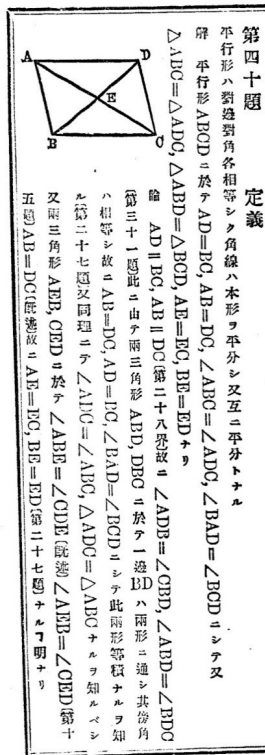 第四十題 定義
平行形ハ對邊對角各相等シク角線ハ本形ヲ平分シ又互ニ平分トナル
解 平行形ABCDニ於テAD=BC, AB=DC, ∠ABC=∠ADC, ∠BAD=∠BCDニシテ又
△ABC=△ADC, △ABD=△BCD, AE=EC, BE=EDナリ
論 AD∥BC, AB∥DC(第二十八界)故ニ∠ADB=∠CBD, ∠ABD=∠BDC
(第三十一題)此ニ由テ兩三角形ABD, DBCニ於テ一邊BDハ兩形ニ通シ其傍角
ハ相等シ故ニAB=DC, AD=BC, ∠BAD=∠BCDニシテ此兩形等積ナルヲ知
ル(第二十七題)又同理ニテ∠ADC=∠ABC, △ADC=△ABCナルヲ知ルベシ
又兩三角形AEB, CEDニ於テ∠ABE=∠CDE(既述)∠AEB=∠CED(第十
五題)AB=DC(既述)故ニAE=EC, BE=ED(第二十七題)ナルヿ明ナリ
A
D
E
B
C